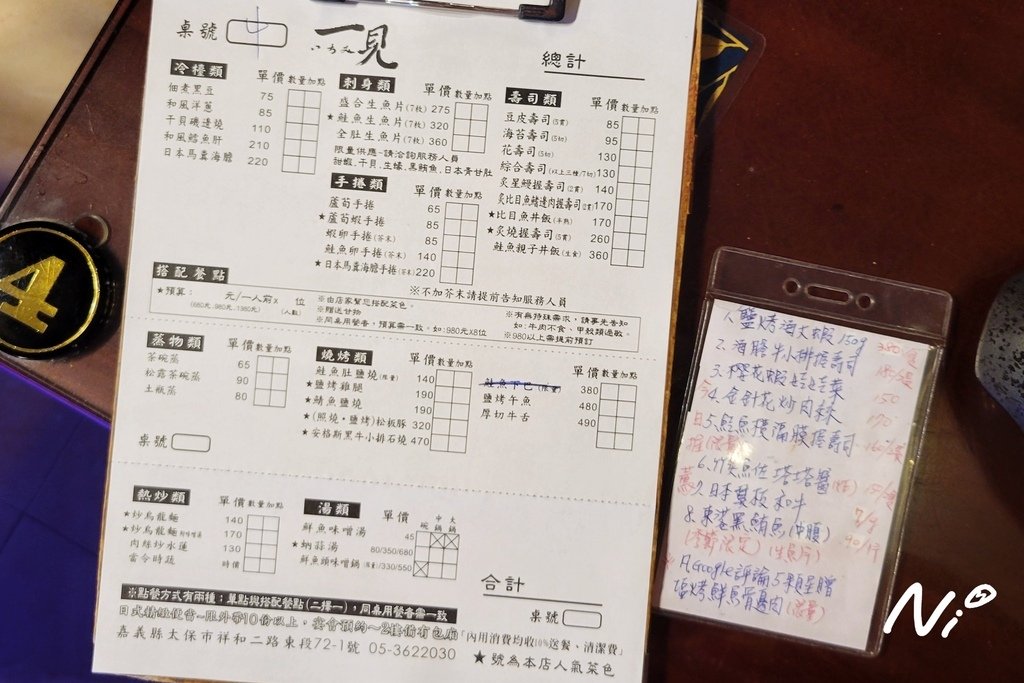 桌號
一見
總計
冷檯類 單價 數量加點
佃煮黑豆 75
和風洋蔥 85
干貝磯邊燒 110
和風鱈魚肝 210
日本馬糞海膽 220
刺身類 單價 數量加點
盛合生魚片(7枚) 275
★鮭魚生魚片(7枚) 320
全肚生魚片(7枚) 360
限量供應~請洽詢服務人員
甜蝦、干貝、生蠔、黑鮪魚、日本青甘肚
手捲類 單價 數量加點
蘆筍手捲 65
★蘆筍蝦手捲 85
蝦卵手捲(芥末) 85
鮭魚卵手捲(芥末) 140
★日本馬糞海膽手捲(芥末) 220
壽司類 單價 數量加點
豆皮壽司(5貫) 85
海苔壽司(5切) 95
花壽司(5切) 130
綜合壽司(以上三種/7切) 130
炙星鰻握壽司(2貫) 140
炙比目魚鰭邊肉握壽司(2貫) 170
★比目魚丼飯(半熟) 170
★炙燒握壽司(5貫) 260
鮭魚親子丼飯(生食) 360
※不加芥末請提前告知服務人員
搭配餐點
★預算： 元/一人前x 位
(680元、980元、1380元) (人數)
※由店家幫您搭配菜色。
※贈送甘物
※同桌用餐者，預算需一致。如:980元x8位
※有無特殊需求，請事先告知
如:牛肉不食、甲殼類過敏。
※980以上需提前預訂
蒸物類 單價 數量加點
茶碗蒸 65
松露茶碗蒸 90
土瓶蒸 80
燒烤類 單價 數量加點
鮭魚肚鹽燒(限量) 140
★鹽烤雞腿 190
★鯖魚鹽燒 190
★(照燒·鹽烤)松板豚 320
★安格斯黑牛小排石燒 470
單價 數量加點
鮭魚下巴(限量) 380
鹽烤午魚 480
厚切牛舌 490
桌號
熱炒類 單價 數量加點
★炒烏龍麵 140
★炒烏龍麵附味噌湯 170
肉絲炒水蓮 130
當令時蔬 時價
湯類 單價 中 大
碗 鍋 鍋
鮮魚味噌湯 45
★蛤蒜湯 80/350/680
鮮魚頭味噌鍋(限量) 330/550
合計
桌號
※點餐方式有兩種：單點與搭配餐點(二擇一)，同桌用餐者需一致
日式精緻便當~限外帶10份以上，宴會預約~2樓備有包廂
「內用消費均收10%送餐、清潔費」
嘉義縣太保市祥和二路東段72-1號 05-3622030
★號為本店人氣菜色
4
1.鹽烤海大蝦150g 380/隻
2.海膽牛小排握壽司
3.櫻花蝦炒時菜 150
4.金針花炒肉絲 170
5.鮭魚橫隔膜握壽司
6.竹筴魚佐塔塔醬
7.日本翼板和牛
8.東港黑鮪魚(中腹)
(季節限定)(生魚片)
凡Google評論5顆星贈
鹽烤鮮魚骨邊肉(限量)
Ni